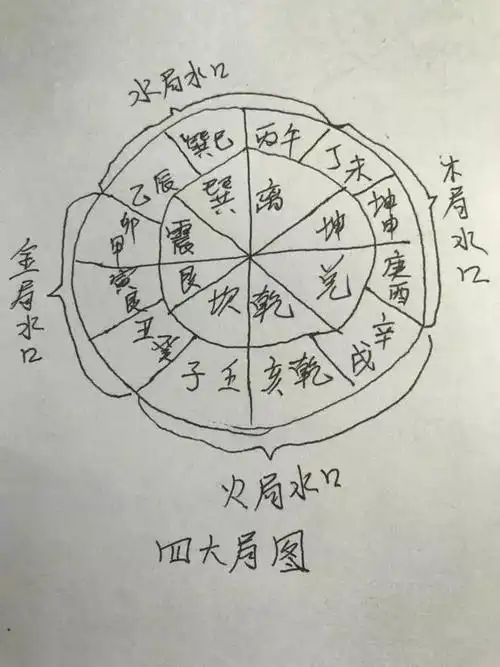 水局水口
巽巳
丙午
乙辰
丁未
巽
离
木局水口
坤申
卯
甲
震
坤
金局水口
庚
酉
寅
艮
艮
兑
坎
乾
丑
癸
辛
戌
子壬
亥乾
火局水口
四大局图